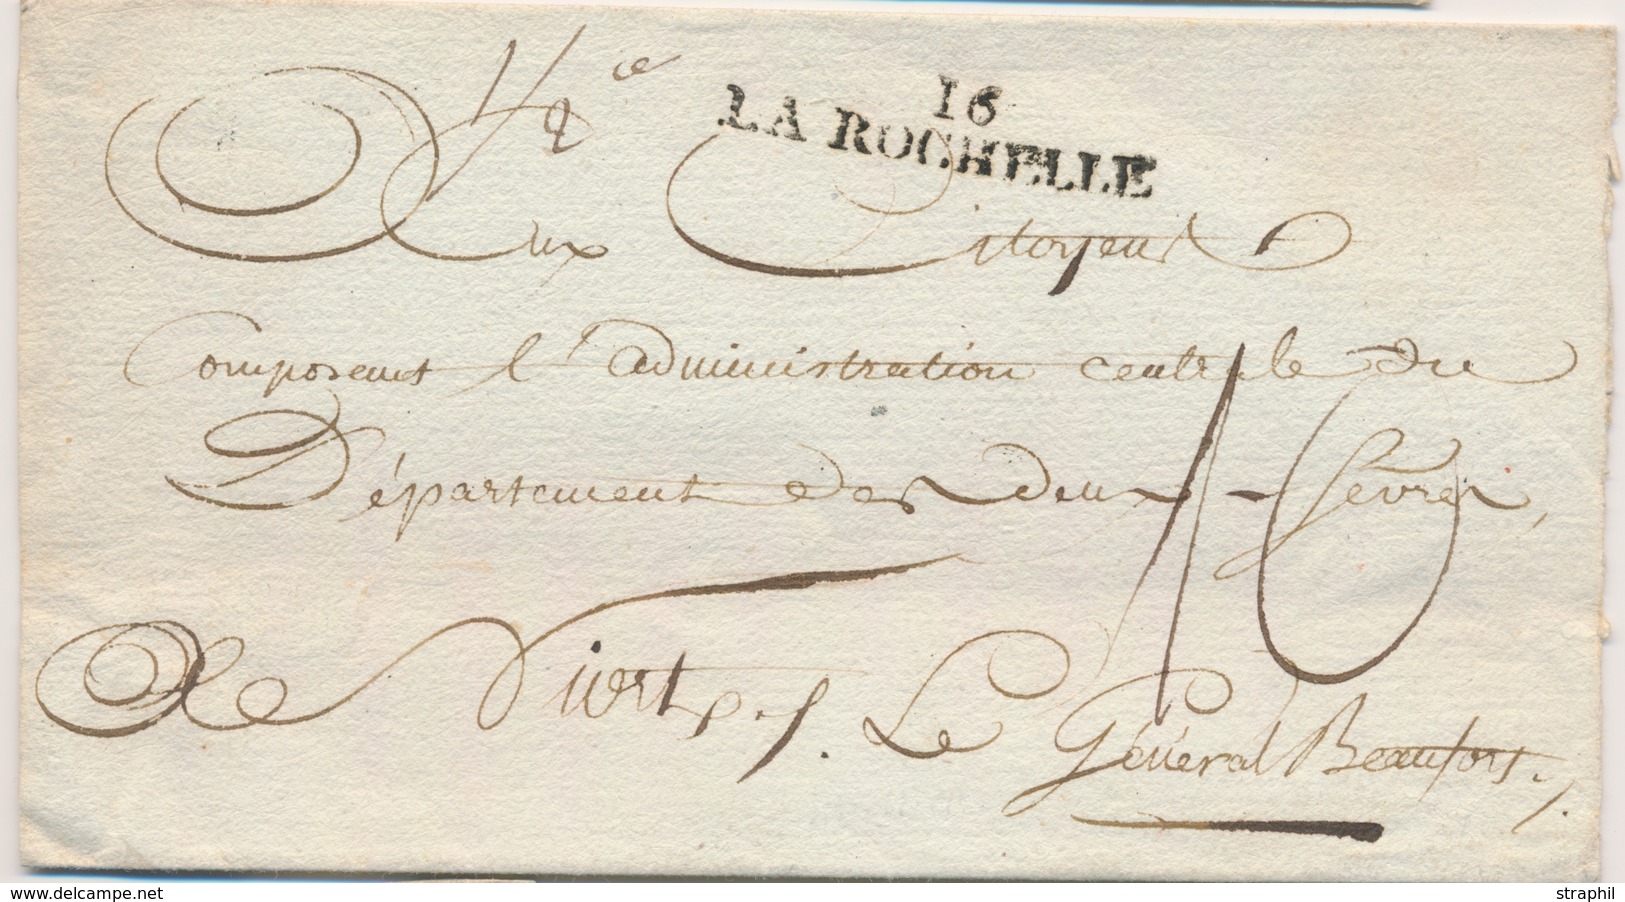 1/2 ce
16
LA ROCHELLE
Aux Citoyens
Composents l'administration centrale du
Département des deux-Sèvres,
A Niort
Le Général Beaufort.
10
www.delcampe.net
straphil